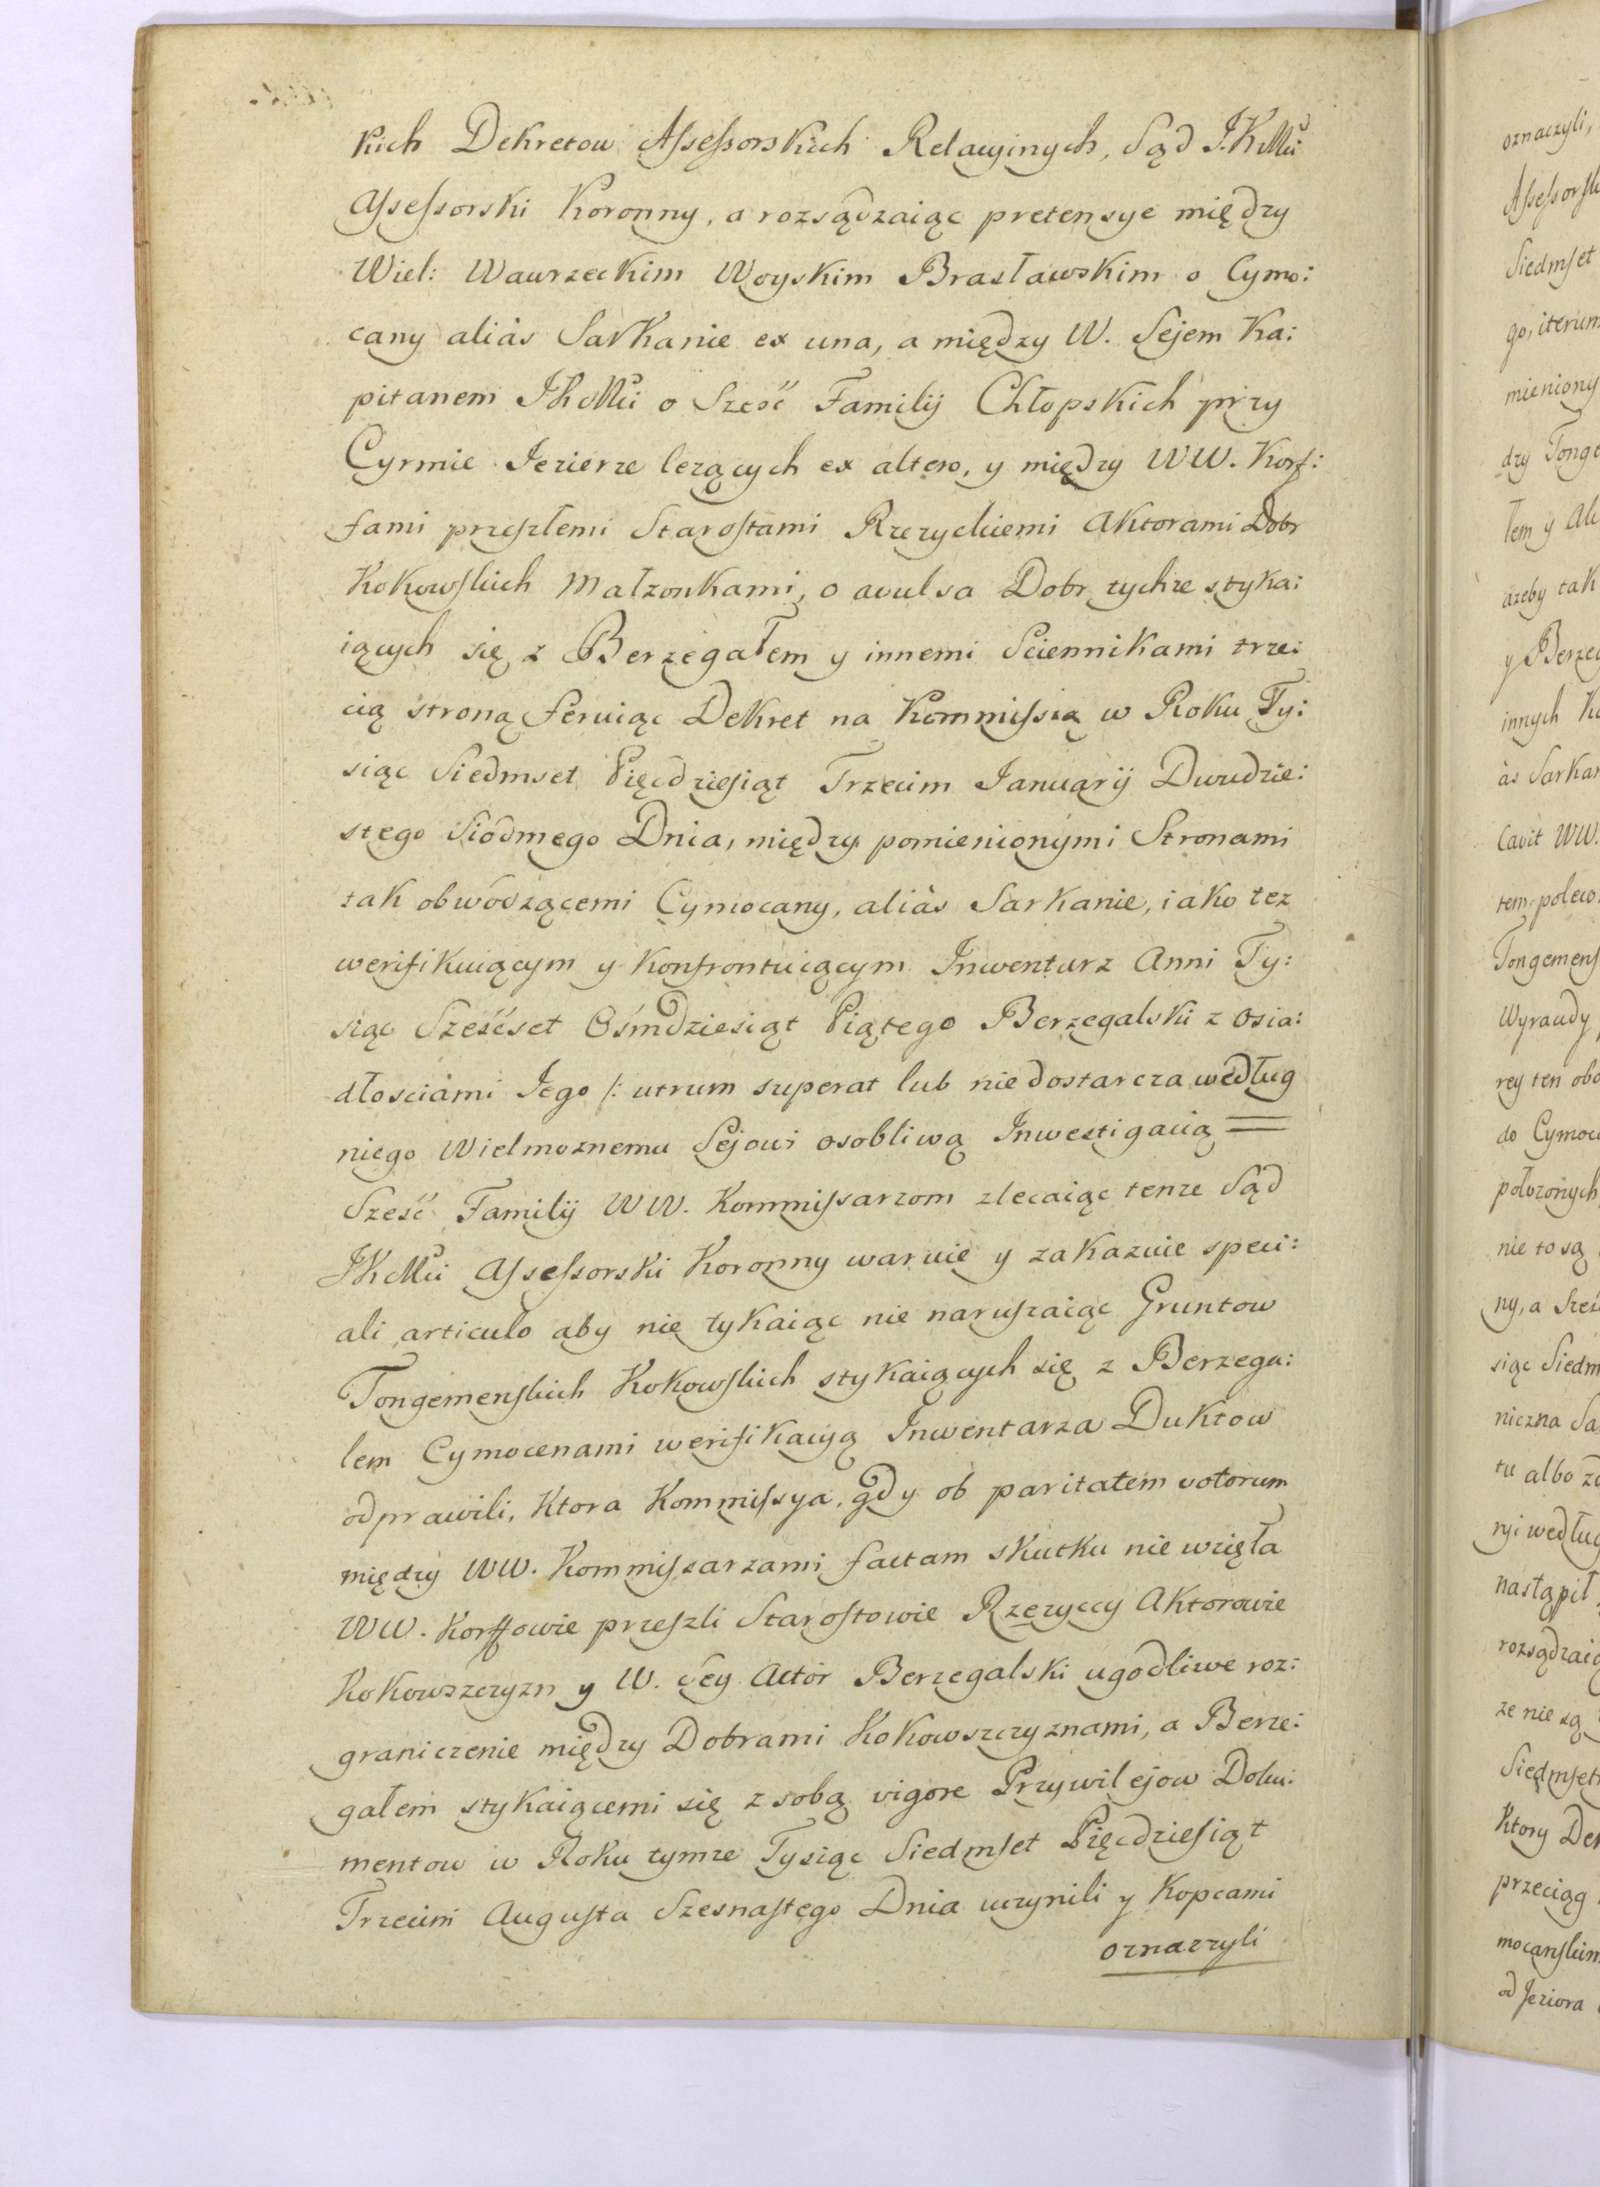 kich Dekretow Assessorskich Relacyinych, Sąd J.K.Mci
Assessorski Koronny, a rozsądzaiąc pretensye między
Wiel: Wawrzeckim Woyskim Brasławskim o Cymo:
cany aliàs Sarkanie ex una, a między W. Sejem Ka:
pitanem JKMci o Sześć Familij Chłopskich przy
Cyrmie Jezierze lezących ex altero, y między WW. Korf:
fami przeszłemi Starostami Rzezyckiemi Aktorami Dobr
Kokowskich Małzonkami, o avulsa Dobr tychze styka:
iących się z Berzegałem y innemi Sciennikami trze:
cią stroną feruiąc Dekret na Kommissią w Roku Ty:
siąc Siedmset Pięcdziesiąt Trzecim Januarij Dwudzie:
stego Siódmego Dnia, między pomienionymi Stronami
tak obwódzącemi Cymocany, aliàs Sarkanie, iako tez
werifikuiącym y konfrontuiącym Inwentarz Anni Ty:
siąc Sześćset Ośmdziesiąt Piątego Berzegalski z Osia:
dłosciami Jego /: utrum superat lub niedostarcza według
niego Wielmoznemu Sejowi osobliwą Inwestigacią =
Sześć Familij WW. Kommissarzom zlecaiąc tenze Sąd
JKMci Assessorski Koronny waruie y zakazuie speci:
ali articulo aby nie tykaiąc nie naruszaiąc Gruntow
Tongemenskich Kokowskich stykaiących się z Berzega:
lem Cymocenami werifikacyą Inwentarza Duktow
odprawili, Ktora Kommissya, gdy ob paritatem votorum
między WW. Kommissarzami factam skutku nie wzięła
WW. Korffowie przeszli Starostowie Rzezyccy Aktorowie
Kokowszczyzn y W. Sey Actor Berzegalski ugodliwe roz:
graniczenie między Dobrami Kokowszczyznami, a Berze:
gałem stykaiącemi się z sobą vigore Przywilejow Doku:
mentow w Roku tymze Tysiąc Siedmset Pięcdziesiąt
Trzecim Augusta Szesnastego Dnia uczynili y Kopcami
oznaczyli
oznaczyli,
Siedmset
go, iterum
mieniony
dzy
azeby tak
innych
às Sarkan
Cavit WW.
Tongemens
Wyraudy
rey ten
do Cymoc
połozonych
nie to są
ny, a Sześ
siąc Siedm
niczna
tu albo
według
nastąpił
rozsądzaią
ze nie są
Siedmset
Ktory De
przeciąg
od Jeziora